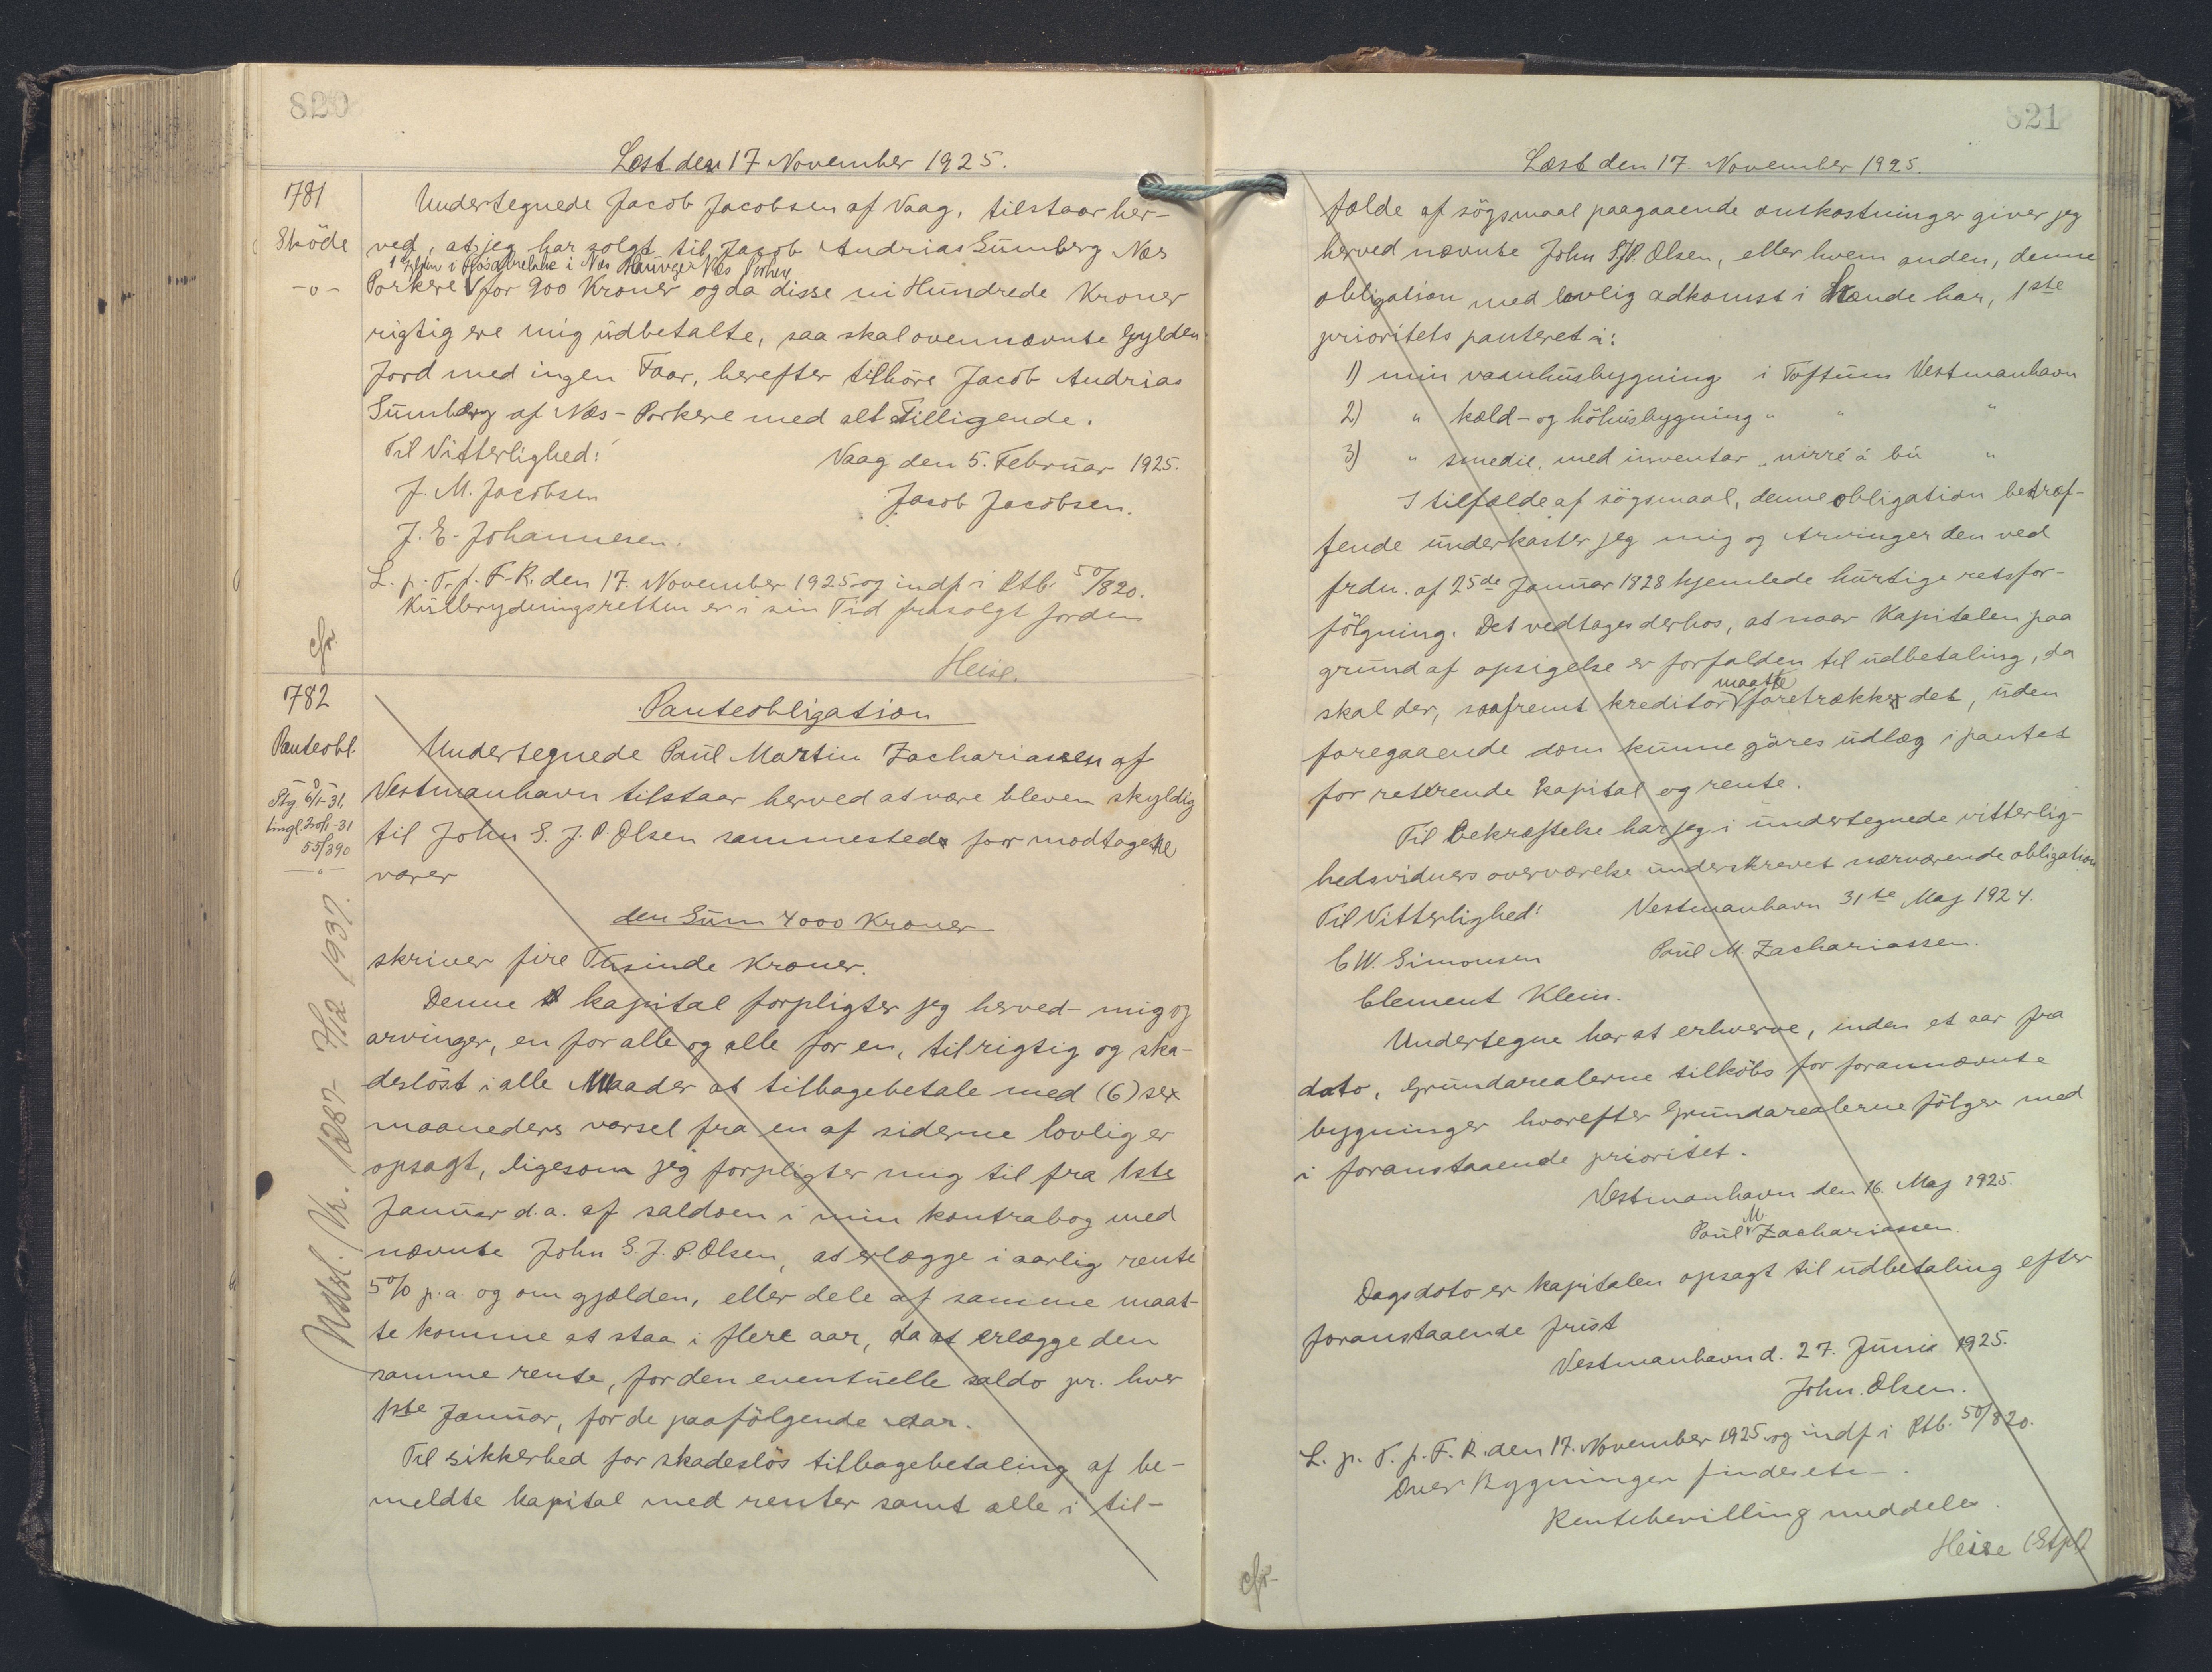 820
Læst den 17 November 1925.
781
Sköde
-o-
Undertegnede Jacob Jacobsen af Vaag, tilstaar her-
ved, at jeg har solgt til Jacob Andrias Sumberg Næs
1 Gylden i Næs Næs Porkere
Porkere for 900 Kroner og da disse ni Hundrede Kroner
rigtig ere mig udbetalte, saa skal ovennævnte Gylden
Jord med ingen Faar, herefter tilhöre Jacob Andrias
Sumberg af Næs-Porkere med alt Tilligende.
Til Vitterlighed! Vaag den 5. Februar 1925.
J. M. Jacobsen Jacob Jacobsen.
J. E. Johannesen.
L. p. T. f. F. R. den 17. November 1925 og indf i Ptb. 50/820.
Kulbrydningsretten er i sin Tid frasolgt Jorden
cfr.
Heise.
782
Panteobl.
-o-
Slg. 6/1-31.
tingl. 20/1-31
55/390
-"-
Udsl. Nr. 1287 7/12 1937.
Panteobligation
Undertegnede Paul Martin Zachariassen af
Vestmanhavn tilstaar herved at være bleven skyldig
til John S. J. P. Olsen sammesteds for modtagene
varer
den Sum 4000 Kroner
skriver fire Tusinde Kroner.
Denne kapital forpligter jeg herved - mig og
arvinger, en for alle og alle for en, til rigtig og ska-
deslöst i alle Maader at tilbagebetale med (6) sex
maaneders varsel fra en af siderne lovlig er
opsagt, ligesom jeg forpligter mig til fra 1ste
Januar d.a. af saldoen i min kontrabog med
nævnte John S. J. P. Olsen, at erlægge i aarlig rente
5% p.a. og om gjælden, eller dele af samme maat-
te komme at staa i flere aar, da at erlægge den
samme rente, for den eventuelle saldo pr. hver
1ste Januar, for de paafölgende aar.
Til sikkerhed for skadeslös tilbagebetaling af be-
meldte kapital med renter samt alle i til-
821
Læst den 17. November 1925.
fælde af sögsmaal paagaaende omkostninger giver jeg
herved nævnte John S.J.P. Olsen, eller hvem anden, denne
obligation med lovlig adkomst i Hænde har, 1ste
prioritets panteret i:
1) min vaanhusbygning i Toftum Vestmanhavn
2) " kæld- og höhusbygning " " "
3) " smedie, med inventar " nirré á bú "
I tilfælde af sögsmaal, denne obligation betræf-
fende underkaster jeg mig og Arvinger den ved
frdn. af 25de Januar 1828 hjemlede hurtige retsfor-
fölgning. Det vedtages derhos, at naar Kapitalen paa
grund af opsigelse er forfalden til udbetaling, da
maatte
skal der, saafremt kreditor foretrække det, uden
foregaaende dom kunne göres udlæg i pantet
for resterende kapital og rente.
Til bekræftelse har jeg i undertegnede vitterlig-
hedsvidners overværelse underskrevet nærværende obligation
Til Vitterlighed! Vestmanhavn 31te Maj 1924.
C W. Simonsen Paul M. Zachariassen.
Clement Klein.
Undertegne har at erhverve, inden et aar fra
dato, Grundarealerne tilköbs for forannævnte
bygninger hvorefter Grundarealerne fölger med
i foranstaaende prioritet.
Vestmanhavn den 16. Maj 1925.
Paul M. Zachariassen.
Dags dato er kapitalen opsagt til udbetaling efter
foranstaaende frist
Vestmanhavn d. 27. Juni 1925.
John. Olsen.
L. p. T. f. F. R. den 17. November 1925 og indf i Ptb. 50/820.
Over Bygningen findes etc-.
Rentebevilling meddeles.
Heise (Stpl)
cfr-